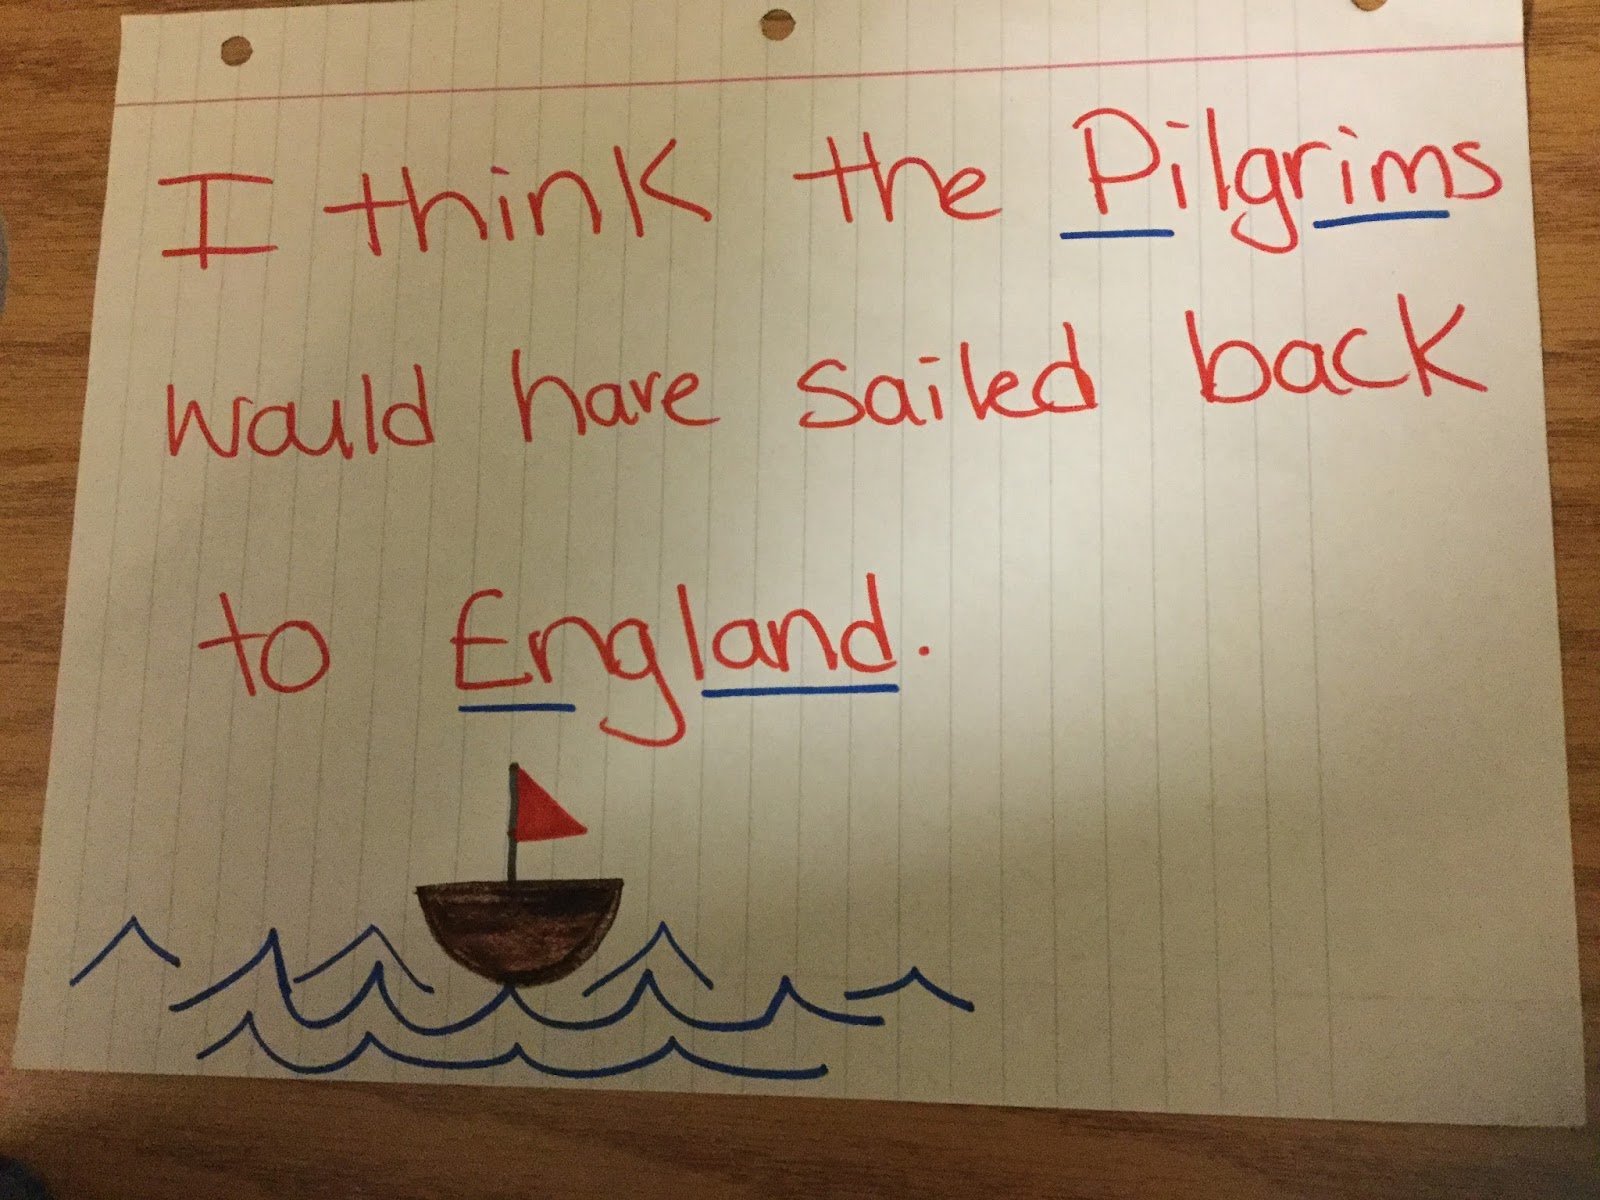 I think the Pilgrims
would have sailed back
to England.